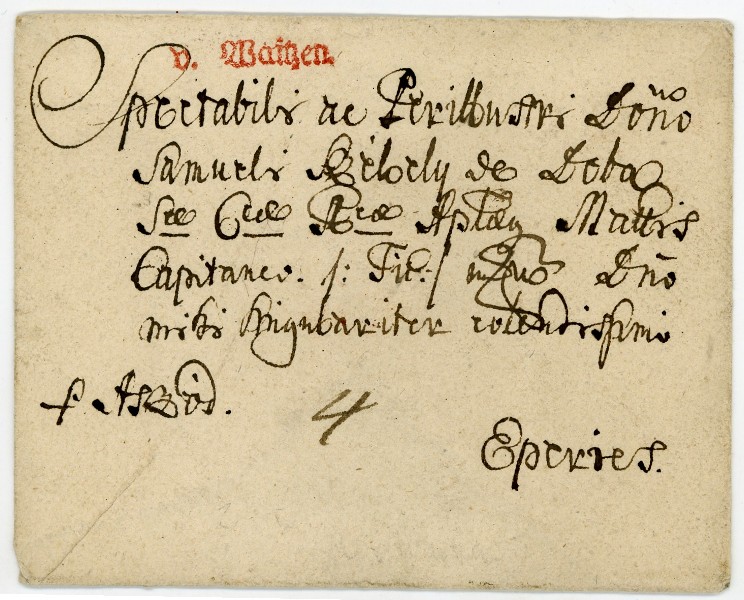 v. Waitzen.
Spectabili ac Perillustri Dōno
Samueli de Doba
Sae Caeae Rae Aplae Mattis
Capitaneo. /: Tit: / Dño
mihi singulariter colendissimo
4
Eperies.